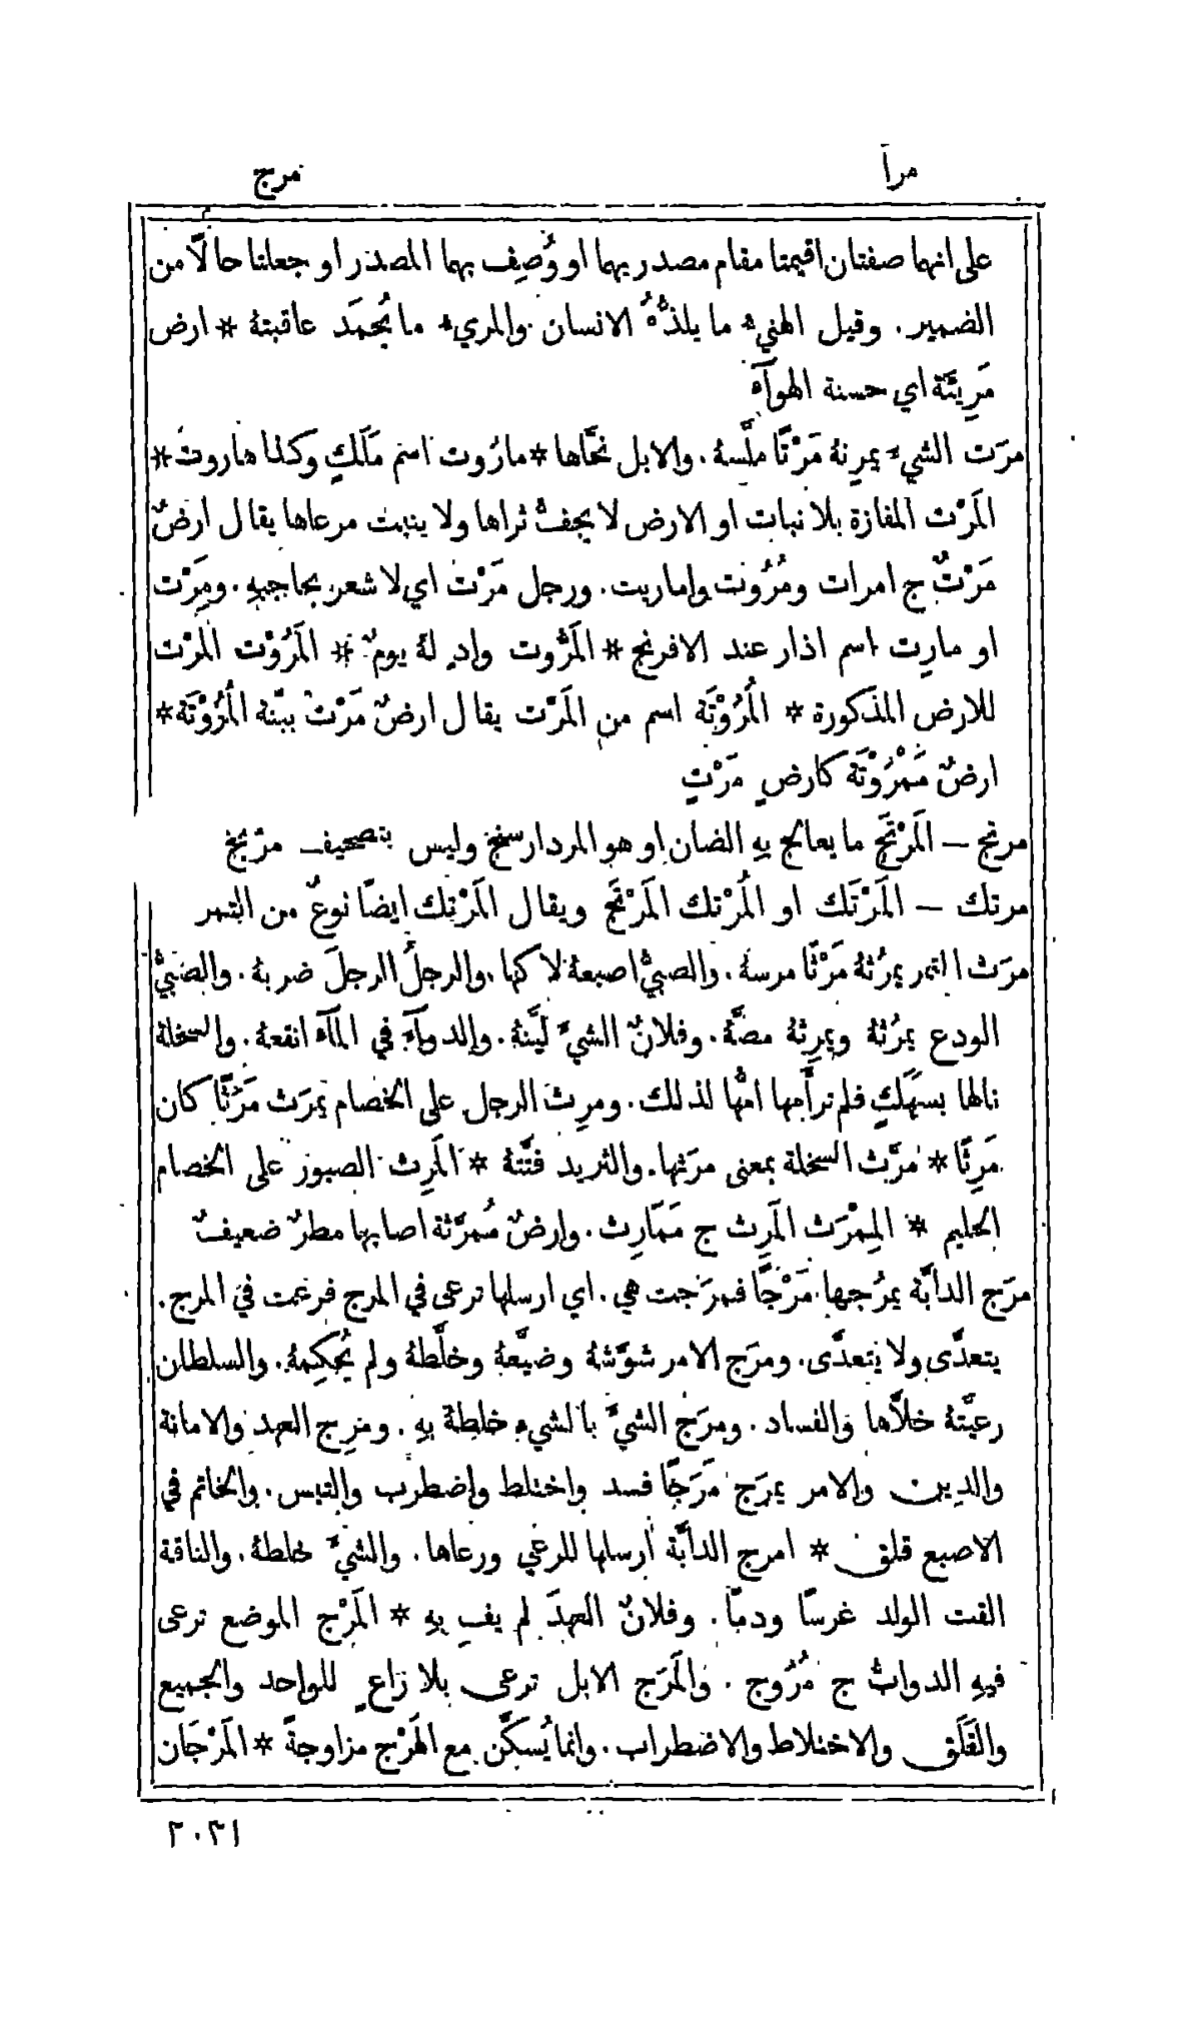 مرأ
مرج
على انهما صفتان اقيمتا مقام مصدريهما او وُصِف بهما المصدر او جعلتا حالًا من
الضمير. وقيل الهنيءُ ما يلذّهُ الانسان والمريءُ ما يُحمَد عاقبتهُ * ارض
مَرِيئَة اي حسنة الهوآءِ
مرَت الشيءَ يمرِتهُ مَرْتًا ملّسهُ. والابل نحّاها * مارُوت اسم مَلَكٍ وكذا هاروت *
المَرْت المفازة بلا نبات او الارض لا يجفّ ثراها ولا ينبت مرعاها يقال ارضٌ
مَرْتٌ ج امرات ومُرُوت واماريت. ورجل مَرْت اي لا شعر بحاجبيهِ. ومَِرْت
او مارِت اسم اذار عند الافرنج * المَرُّوت وادٍ لهُ يومٌ * المَرُوْت المَرْت
للارض المذكورة * المُرُوْتَة اسم من المَرْت يقال ارضٌ مَرْت بيّنة المُرُوْتَة *
ارضٌ مَمْرُوْتَة كارضٍ مَرْتٍ
مرتج – المَرْتَج ما يعالج بهِ الضان او هو المردارسنج وليس بتصحيف مرّيخ
مرتك – المَرْتَك او المُرْتك المَرْتَج ويقال المَرْتك ايضًا نوعٌ من التمر
مرَث التمر يمرُثهُ مَرْثًا مرسهُ. والصبيُّ اصبعهُ لاكها. والرجلُ الرجلَ ضربهُ. والصبيُّ
الودع يمرُثهُ ويمرِثهُ مصّهُ. وفلانٌ الشيءَ ليّنهُ. والدوآءَ في المآءِ انقعهُ. والسخلة
نالها بسَهَكٍ فلم ترأَمها امّها لذلك. ومرِث الرجل على الخصام يمرَث مَرَثًا كان
مَرِثًا * مرّث السخلة بمعنى مرَثها. والثريد فتّتهُ * المَرِث الصبور على الخصام
الحليم * المِمْرَث المَرِث ج مَمَارِث. وارضٌ مُمرَّثة اصابها مطرٌ ضعيفٌ
مرَج الدابّة يمرُجها مَرْجًا فمرَجت هي. اي ارسلها ترعى في المرج فرعت في المرج.
يتعدَّى ولا يتعدَّى. ومرَج الامر شوّشهُ وضيّعهُ وخلّطهُ ولم يُحكِمهُ. والسلطان
رعيّتهُ خلّاها والفساد. ومرَج الشيءَ بالشيءِ خلطهُ بهِ. ومرِج العهد والامانة
والدين والامر يمرَج مَرَجًا فسد واختلط واضطرب والتبس. والخاتم في
الاصبع قلق * امرج الدابّة ارسلها للرعي ورعاها. والشيءَ خلطهُ. والناقة
القت الولد غرسًا ودمًا. وفلانٌ العهدَ لم يفِ بهِ * المَرْج الموضع ترعى
فيهِ الدوابّ ج مُرُوج. والمَرَج الابل ترعى بلا راعٍ للواحد والجميع
والقَلَق والاختلاط والاضطراب. وانما يُسكَّن مع الهَرْج مزاوجةً * المَرْجَان
٢٠٣١